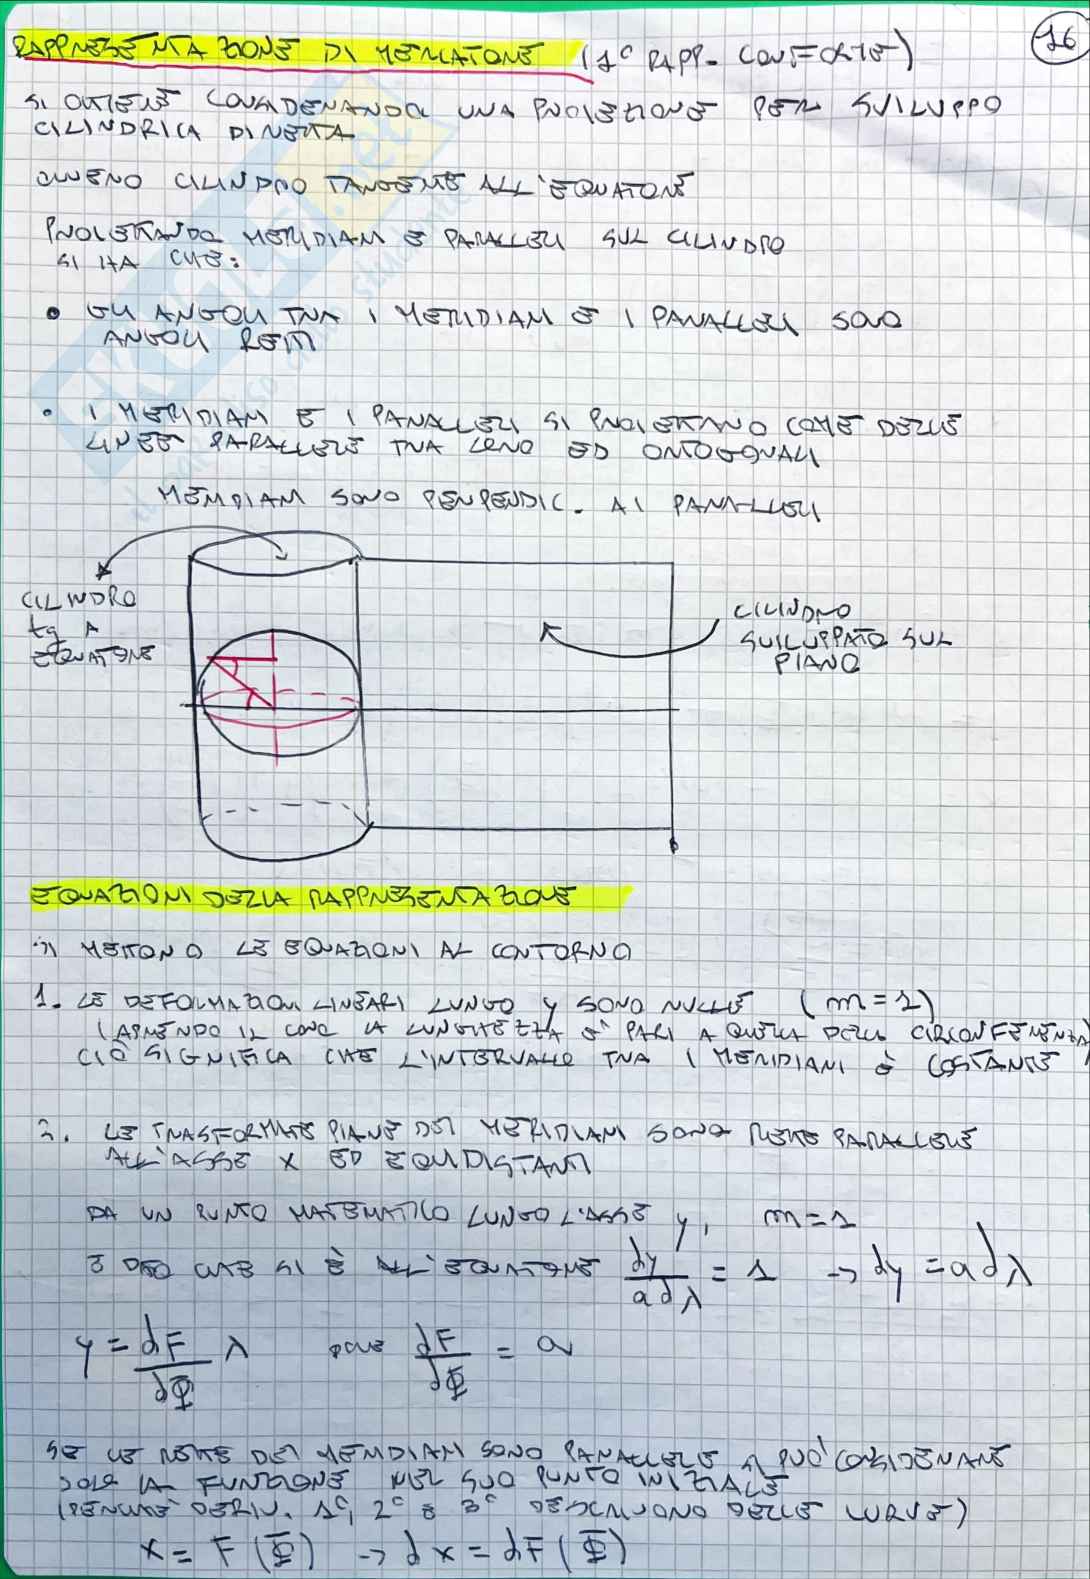 16
RAPPRESENTAZIONE DI MERCATORE (1° RAPP. CONFORME)
SI OTTIENE CONSIDERANDO UNA PROIEZIONE PER SVILUPPO
CILINDRICA DIRETTA
OVVERO CILINDRO TANGENTE ALL'EQUATORE
PROIETTANDO MERIDIANI E PARALLELI SUL CILINDRO
SI HA CHE:
• GLI ANGOLI TRA I MERIDIANI E I PARALLELI SONO
ANGOLI RETTI
• I MERIDIANI E I PARALLELI SI PROIETTANO COME DELLE
LINEE PARALLELE TRA LORO ED ORTOGONALI
MERIDIANI SONO PERPENDIC. AI PARALLELI
CILINDRO
tg A
EQUATORE
CILINDRO
SVILUPPATO SUL
PIANO
EQUAZIONI DELLA RAPPRESENTAZIONE
SI METTONO LE EQUAZIONI AL CONTORNO
1. LE DEFORMAZIONI LINEARI LUNGO y SONO NULLE (m=1)
(APRENDO IL LA LUNGHEZZA È PARI A QUELLA DELLA CIRCONFERENZA)
CIÒ SIGNIFICA CHE L'INTERVALLO TRA I MERIDIANI È COSTANTE
2. LE TRASFORMATE PIANE DEI MERIDIANI SONO RETTE PARALLELE
ALL'ASSE X ED EQUIDISTANTI
DA UN PUNTO MATEMATICO LUNGO L'ASSE y, m=1
E DATO CHE SI È ALL'EQUATORE dy/adλ = 1 → dy = adλ
y = dF/dΦ λ dove dF/dΦ = a
SE LE RETTE DEI MERIDIANI SONO PARALLELE SI PUÒ CONSIDERARE
SOLO LA FUNZIONE NEL SUO PUNTO INIZIALE
(PERCHÉ DERIV. 1°, 2° E 3° DESCRIVONO DELLE CURVE)
x = F(Φ) → dx = dF(Φ)
EKGLIS.net